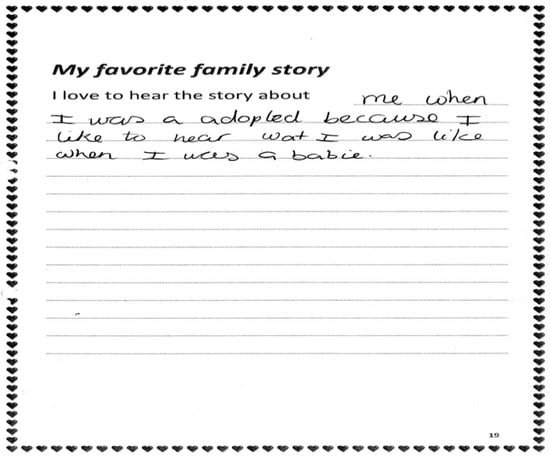 My favorite family story
I love to hear the story about me when
I was a adopled because I
like to hear wat I was like
when I was a babie.
19